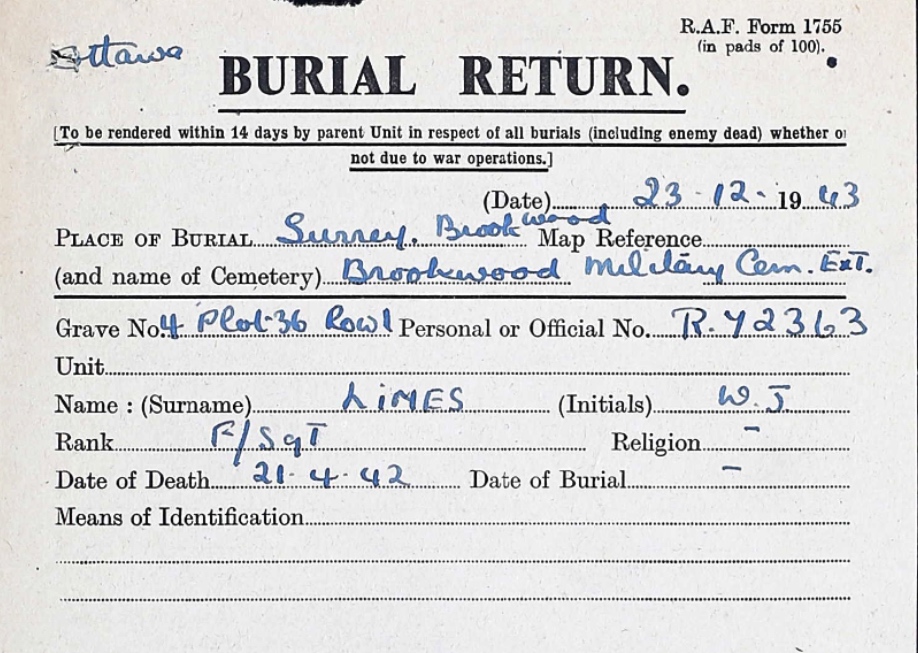 R.A.F. Form 1755
(in pads of 100).
Ottawa
BURIAL RETURN.
[To be rendered within 14 days by parent Unit in respect of all burials (including enemy dead) whether or
not due to war operations.]
(Date) 23-12-1943
PLACE OF BURIAL Surrey. Brookwood Map Reference
(and name of Cemetery) Brookwood Military Cem. EXT.
Grave No. 4 Plot 36 Row 1 Personal or Official No. R.72363
Unit
Name : (Surname) LIMES (Initials) W.J.
Rank F/SgT Religion -
Date of Death 21-4-42 Date of Burial -
Means of Identification